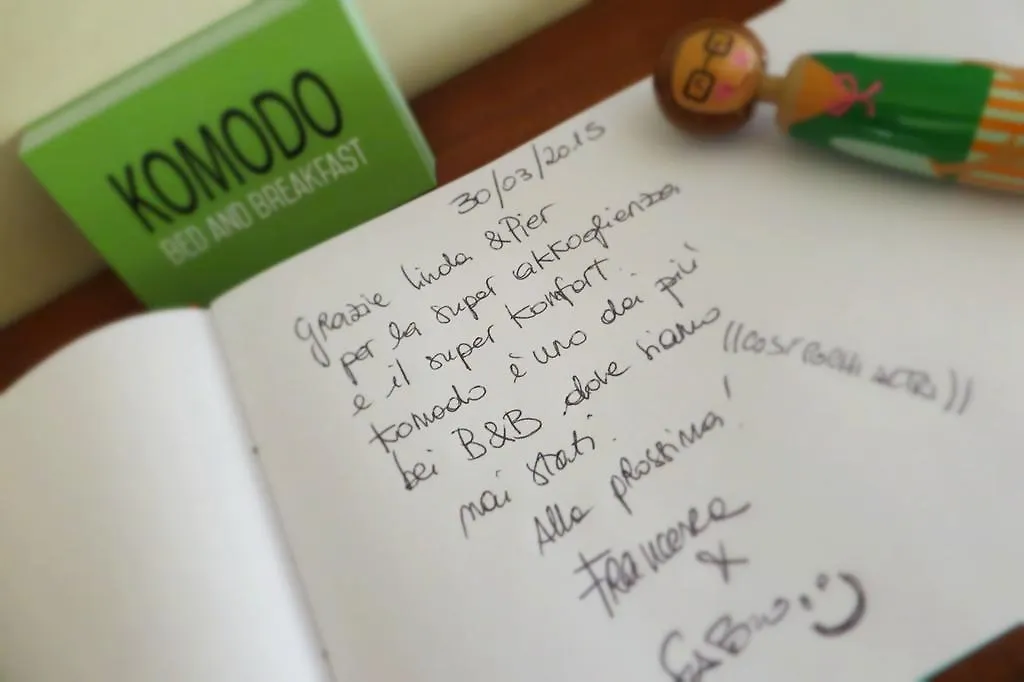 KOMODO
BED AND BREAKFAST
30/03/2015
Grazie Linda & Pier
per la super akkoglienza
e il super komfort.
Komodo è uno dei più
bei B&B dove siamo
mai stati.
Alla prossima!
Francesca
&